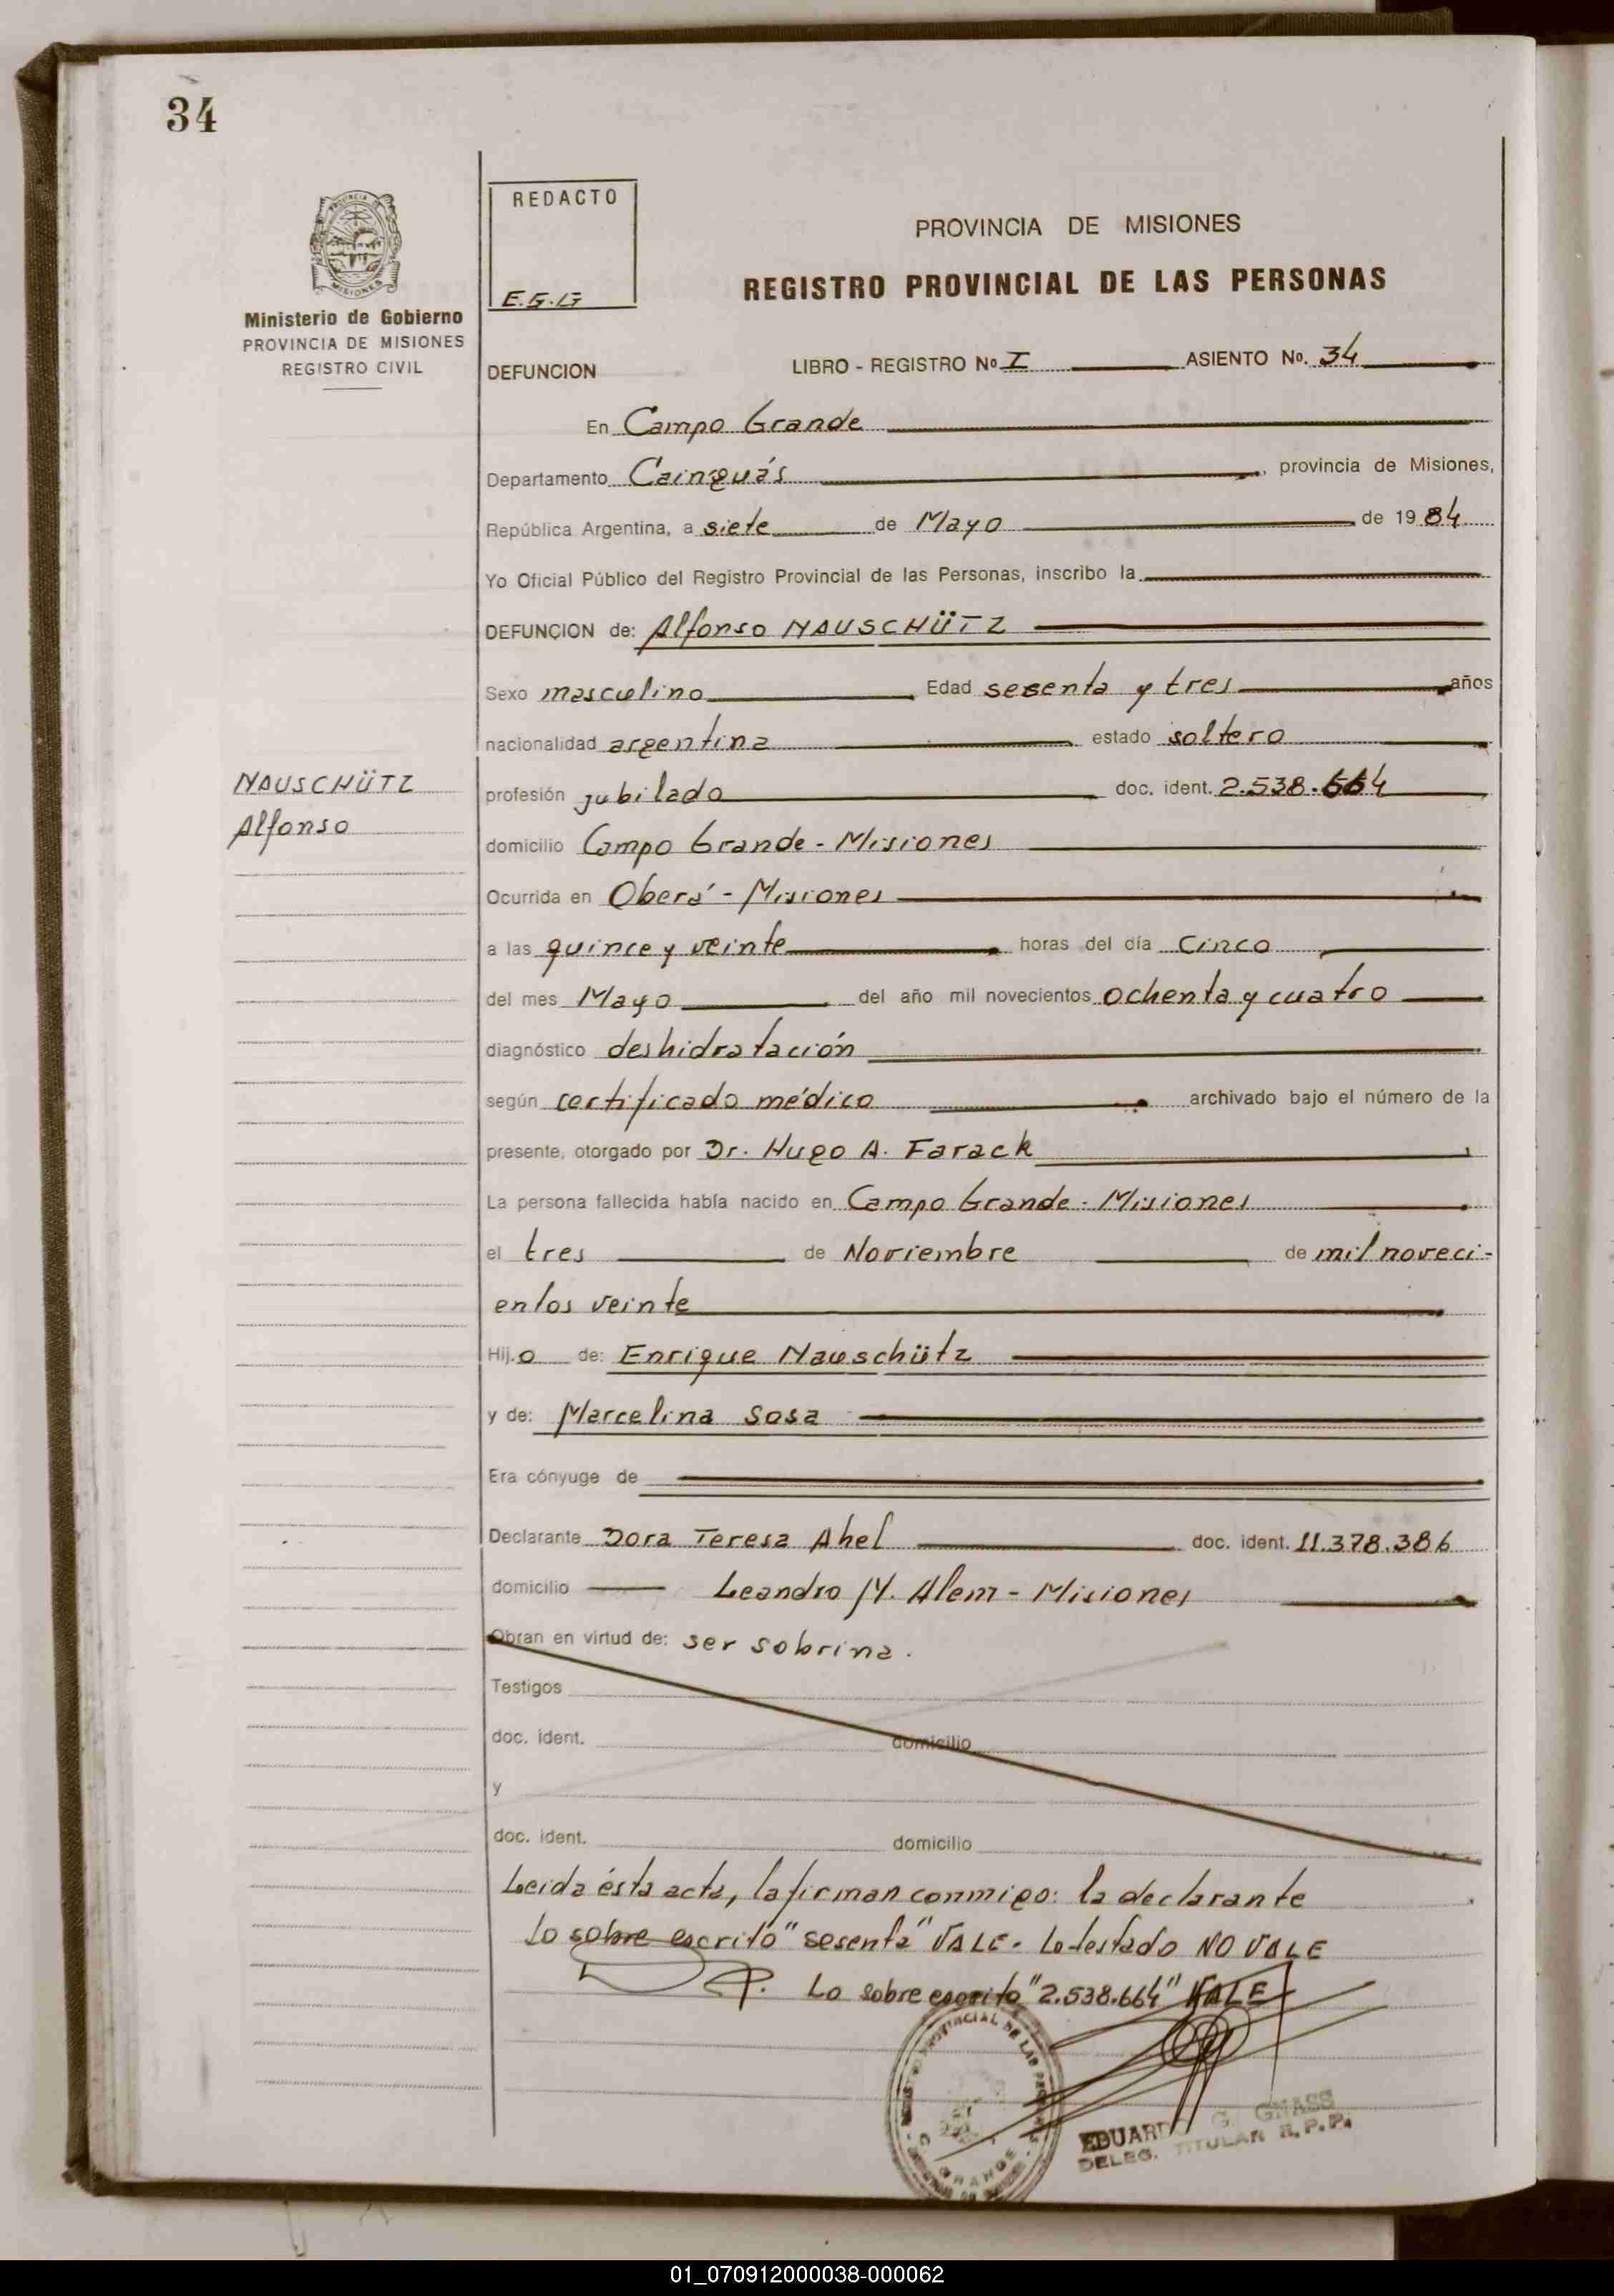 34
REDACTO
E.G.G
Ministerio de Gobierno
PROVINCIA DE MISIONES
REGISTRO CIVIL
PROVINCIA DE MISIONES
REGISTRO PROVINCIAL DE LAS PERSONAS
DEFUNCION LIBRO - REGISTRO Nº I ASIENTO No. 34
En Campo Grande
Departamento Cainguás, provincia de Misiones,
República Argentina, a siete de Mayo de 1984
Yo Oficial Público del Registro Provincial de las Personas, inscribo la
DEFUNCION de: Alfonso NAUSCHÜTZ
Sexo masculino Edad sesenta y tres años
nacionalidad argentina estado soltero
NAUSCHÜTZ
Alfonso
profesión jubilado doc. ident. 2.538.664
domicilio Campo Grande - Misiones
Ocurrida en Oberá - Misiones
a las quince y veinte horas del día Cinco
del mes Mayo del año mil novecientos ochenta y cuatro
diagnóstico deshidratación
según certificado médico archivado bajo el número de la
presente, otorgado por Dr. Hugo A. Farack
La persona fallecida había nacido en Campo Grande - Misiones
el tres de Noviembre de mil noveci-
entos veinte
Hijo de: Enrique Nauschütz
y de: Marcelina Sosa
Era cónyuge de
Declarante Dora Teresa Ahel doc. ident. 11.378.386
domicilio Leandro N. Alem - Misiones
Obran en virtud de: ser sobrina.
Testigos
doc. ident. domicilio
y
doc. ident. domicilio
Leida ésta acta, la firman conmigo: la declarante
Lo sobre escrito "sesenta" VALE. Lo testado NO VALE
Lo sobre escrito "2.538.664" VALE
EDUARDO G. GNASS
DELEG. TITULAR R.P.P.
01_070912000038-000062